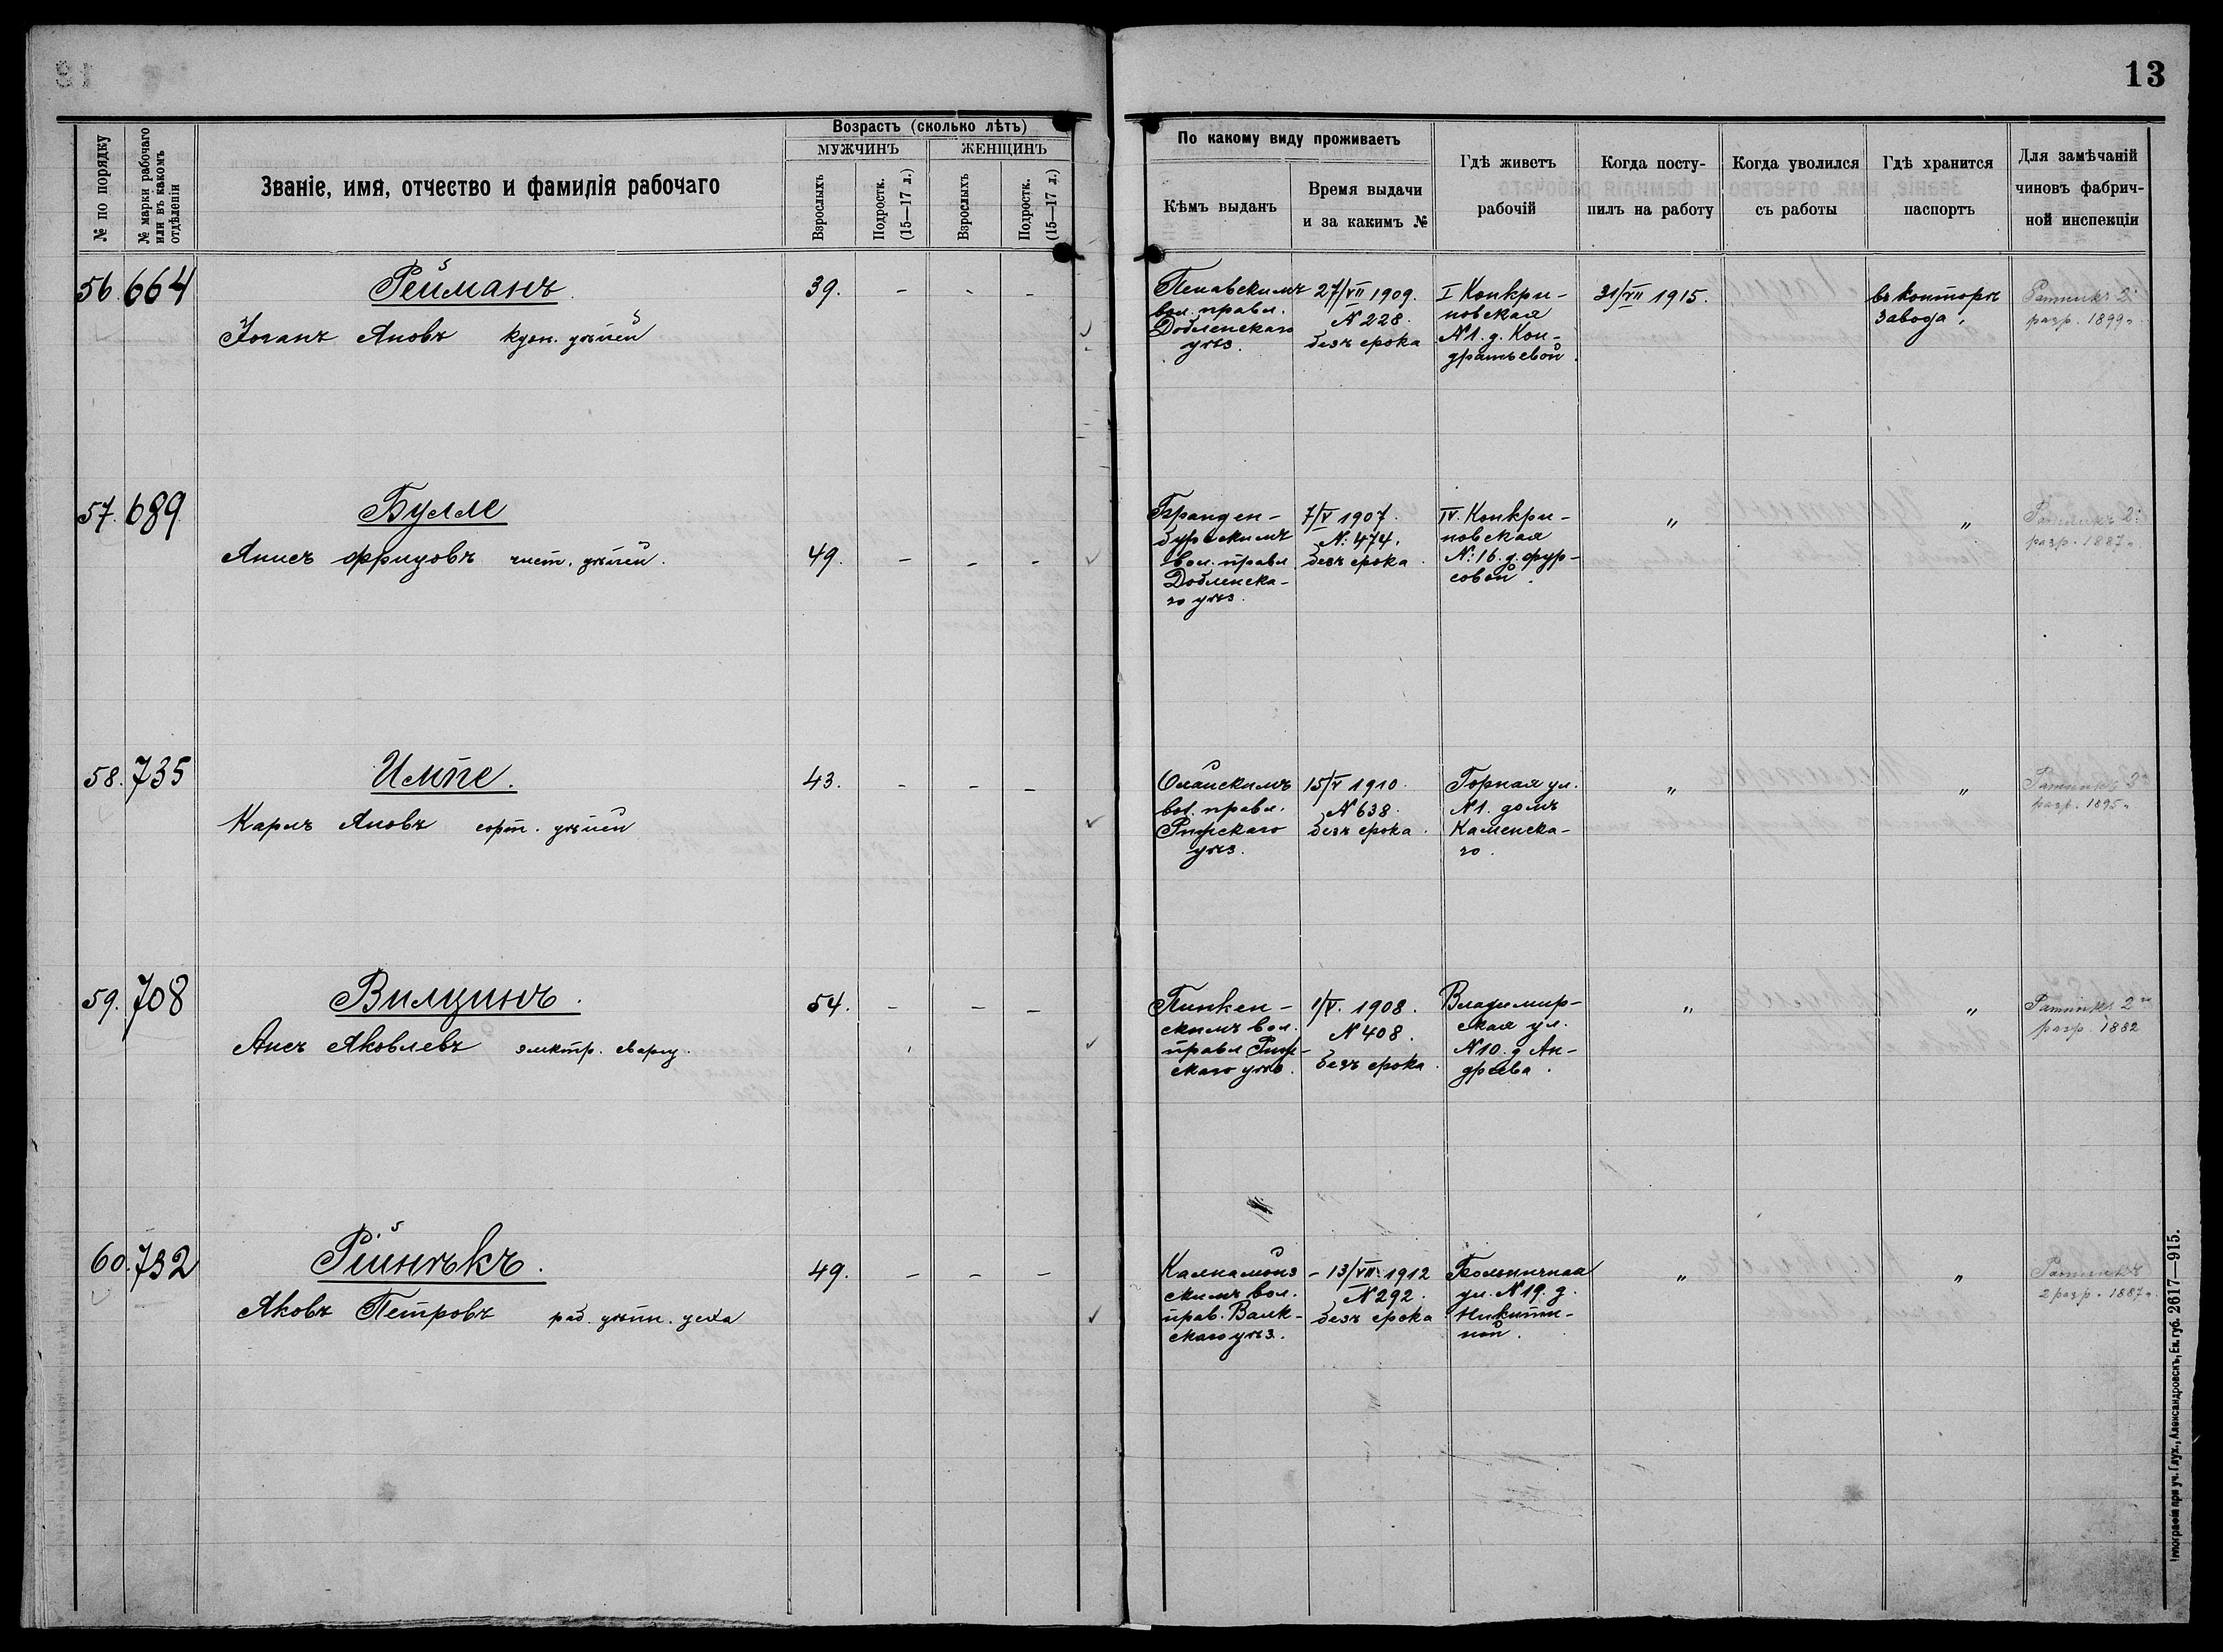 13
№ по порядку
№ марки рабочаго или въ какомъ отдѣленіи
Званіе, имя, отчество и фамилія рабочаго
Возрастъ (сколько лѣтъ)
МУЖЧИНЪ
ЖЕНЩИНЪ
Взрослыхъ
Подростк. (15—17 л.)
Взрослыхъ
Подростк. (15—17 л.)
По какому виду проживаетъ
Кѣмъ выданъ
Время выдачи
и за какимъ №
Гдѣ живетъ
рабочій
Когда посту-
пилъ на работу
Когда уволился
съ работы
Гдѣ хранится
паспортъ
Для замѣчаній
чиновъ фабрич-
ной инспекціи
56 664
Рейманъ
Іоганъ Яновъ кузн. цѣпей
39. - - -
Пенавскимъ
вол. правл.
Добленскаго
уѣз.
27/VII 1909.
N 228.
безъ срока
I Конкри-
новская
N1. д. Кон-
дратьевой.
31/VII 1915.
въ конторѣ
завода.
Ратникъ 2:
разр. 1899 г.
57. 689
Булле
Янисъ Фрицовъ чист. цѣпей.
49. - - -
Бранден-
бургскимъ
вол. правл
Добленска-
го уѣз.
7/V 1907.
N: 474.
безъ срока.
IV. Конкри-
новская
N: 16. д. Фур-
совой.
"
"
Ратникъ 2:
разр. 1887 г.
58. 735
Импе.
Карлъ Яновъ сорт. цѣпей
43. - - -
Олайскимъ
вол. правл.
Рижскаго
уѣз.
15/V 1910.
N 638.
безъ срока.
Горная ул.
N1. домъ
Каменска-
го.
"
"
Ратникъ
разр. 1895 г.
59. 708
Вилцинъ.
Янсъ Яковлевъ электр. сварщ.
54. - - -
Пинкен-
скимъ вол.
правл Риж-
скаго уѣз.
1/V. 1908.
N 408.
безъ срока.
Владимир-
ская ул.
N10. д Ан-
дреева.
"
"
Ратникъ 2го
разр. 1882
60. 732
Рійнѣкъ.
Яковъ Петровъ раб. цѣпн. цеха
49. - - -
Калнамойз-
скимъ вол.
прав. Валк-
скаго уѣз.
13/VII. 1912
N 292.
безъ срока
Больничная
ул. N 19. д.
Никити-
ной.
"
"
Ратникъ
2 разр. 1887 г.
Типографія при уч. Глух., Александровскъ, Ек. губ. 2617—915.